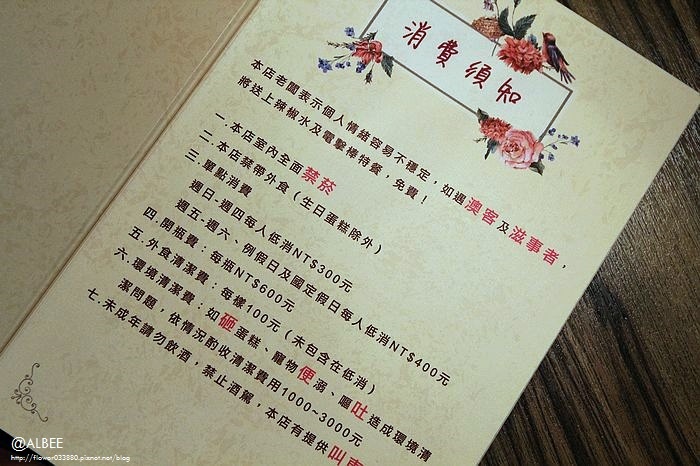 消費須知
本店老闆表示個人情緒容易不穩定，如遇澳客及滋事者，
將送上辣椒水及電擊棒特餐，免費！
一. 本店室內全面禁菸
二. 本店禁帶外食（生日蛋糕除外）
三. 單點消費
週日-週四每人低消NT$300元
週五-週六、例假日及國定假日每人低消NT$400元
四. 開瓶費：每瓶NT$600元
五. 外食清潔費：每樣100元（未包含在低消）
六. 環境清潔費：如砸蛋糕、寵物便溺、嘔吐造成環境清
潔問題，依情況酌收清潔費用1000~3000元
七. 未成年請勿飲酒，禁止酒駕，本店有提供叫車
@ALBEE
http://flower033880.pixnet.net/blog